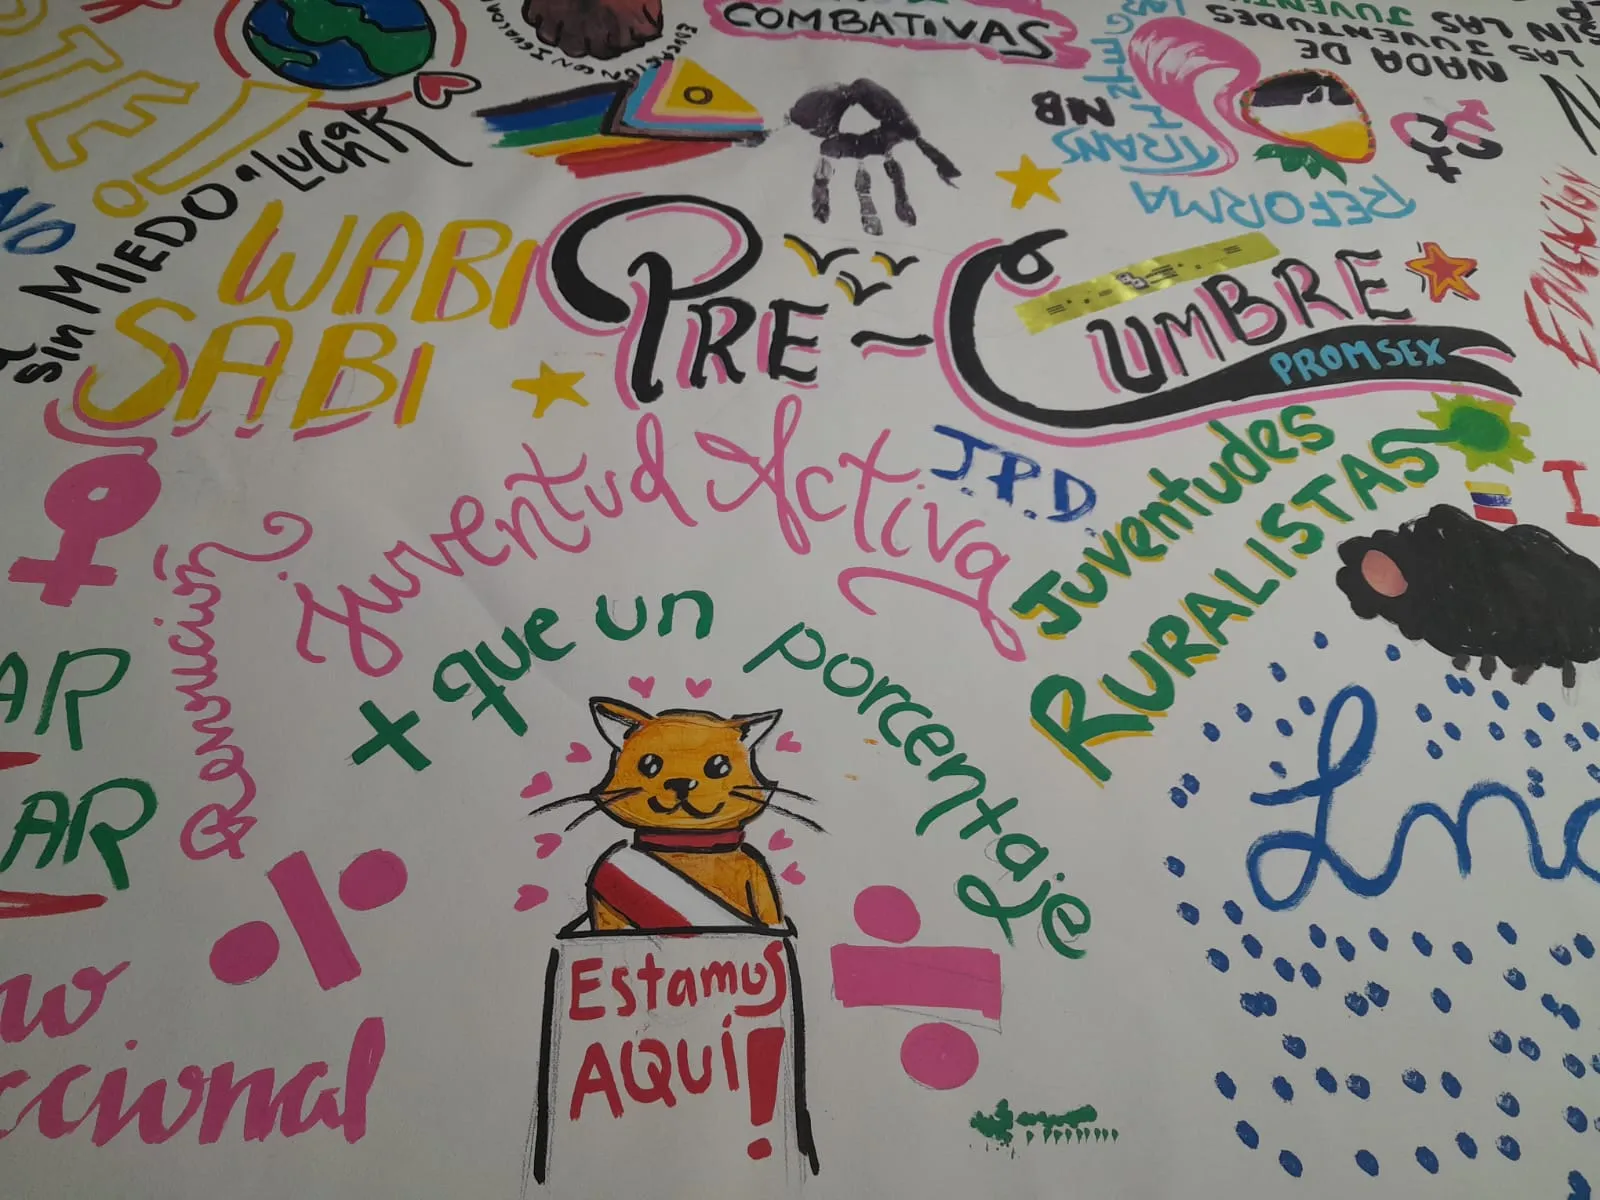 COMBATIVAS
EDUCACIÓN CON IGUALDAD
SIN LAS
JUVENTUDES
NADA DE
LAS JUVENTUDES
SIN LAS
NB
TRANS
REFORMA
TE!
NO
Sin MIEDO a LUCHAR
WABI
SABI
PRE-CUMBRE
PROMSEX
EDUCACIÓN
Juventud Activa
J.P.D.
Juventudes
RURALISTAS
Revolución
+ que un porcentaje
AR
AR
Estamos
AQUÍ!